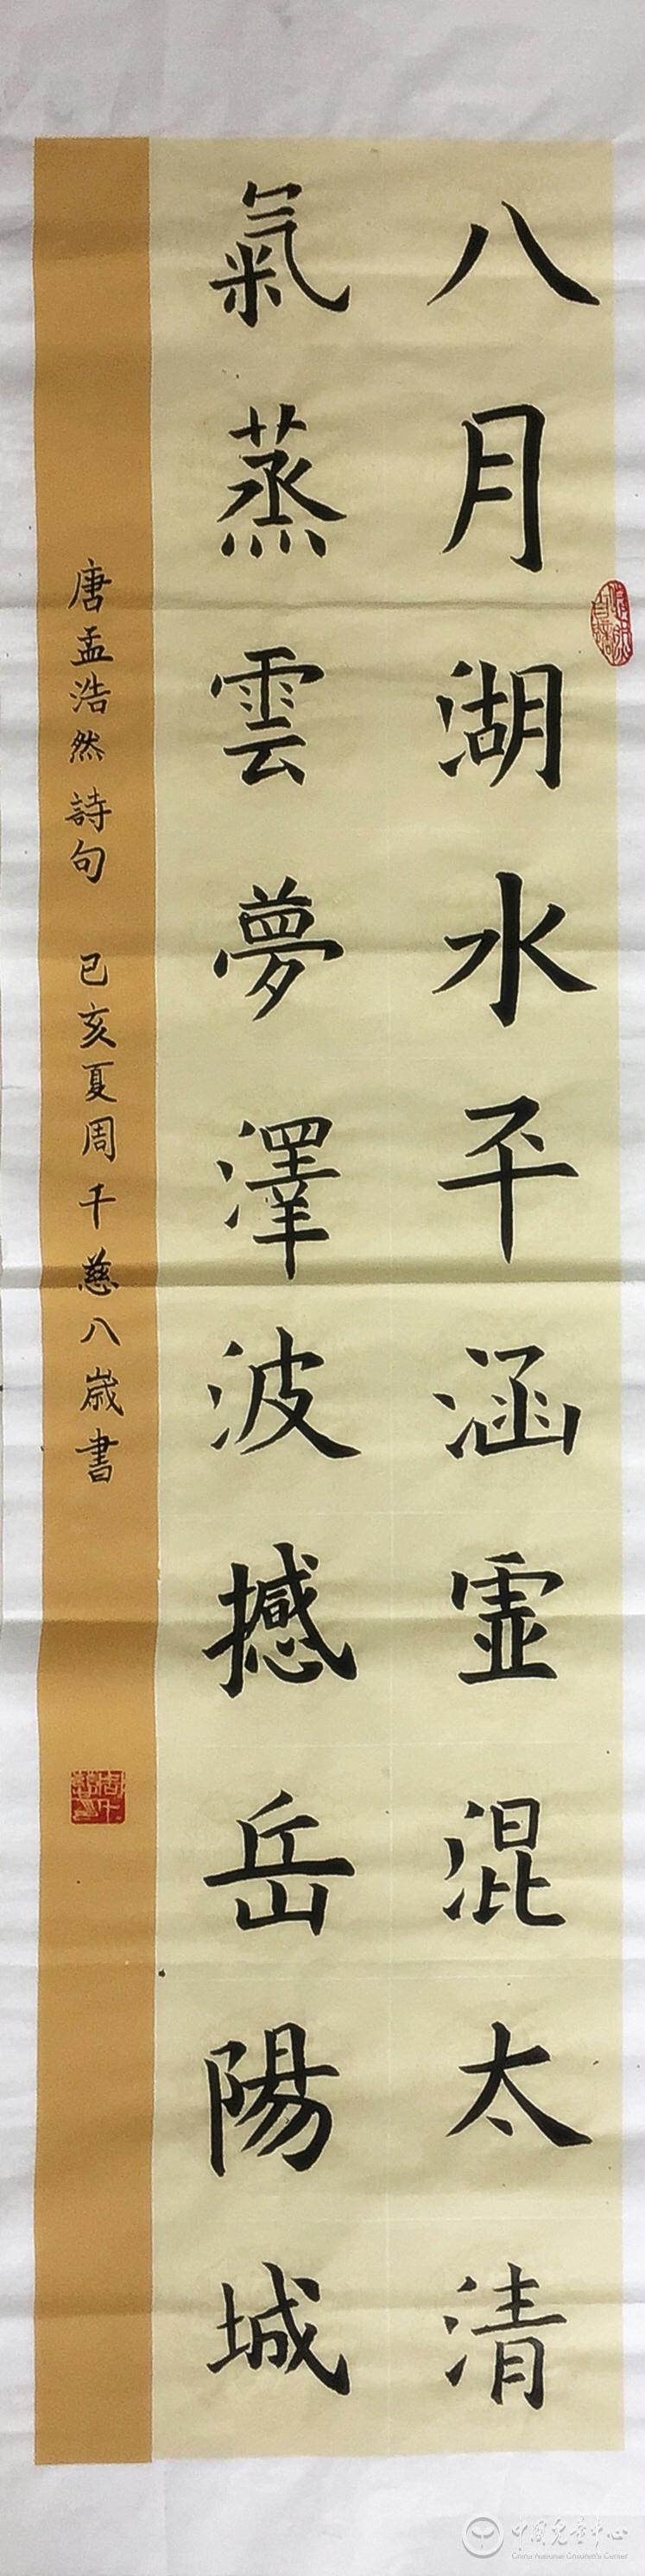 八月湖水平涵虛混太清
氣蒸雲夢澤波撼岳陽城
唐孟浩然詩句 己亥夏周千慈八歲書
中国儿童中心
China National Children's Center